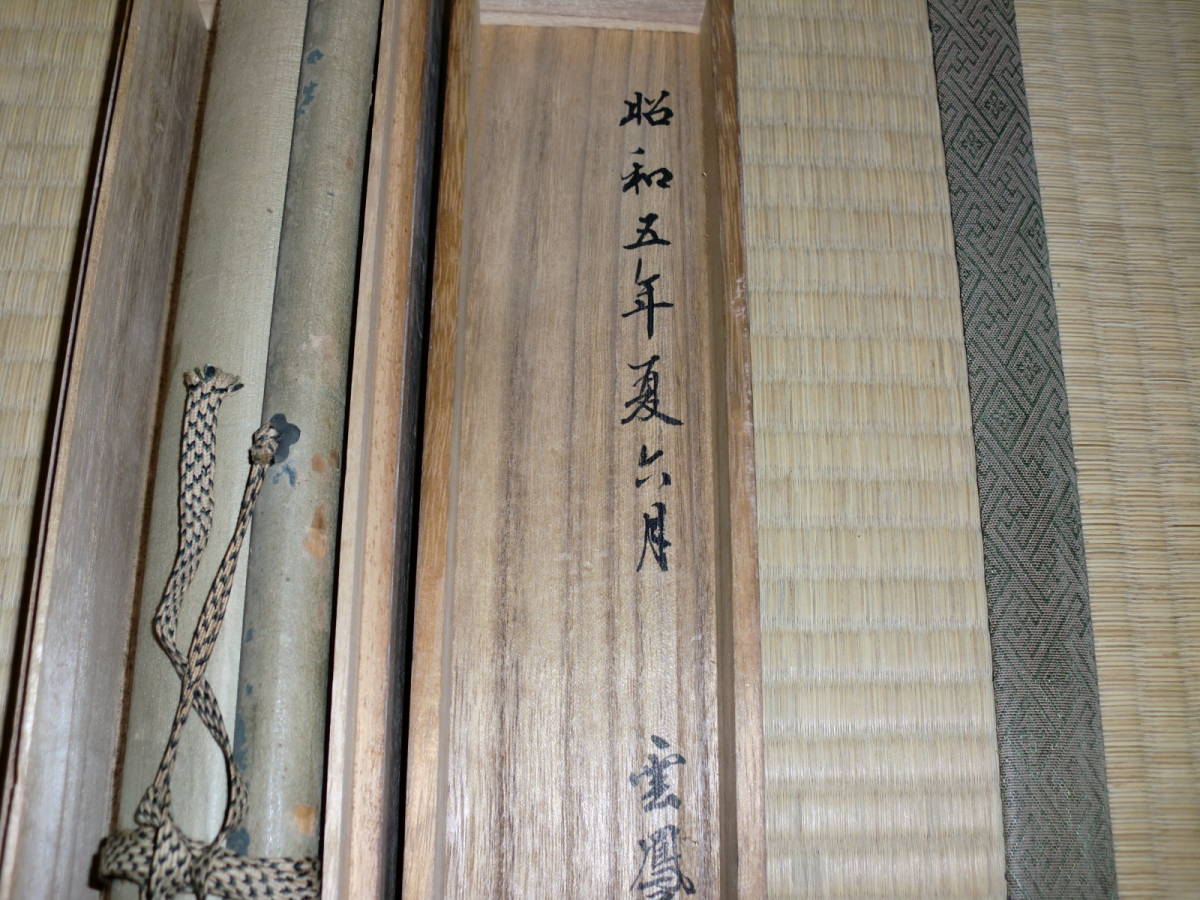 昭和五年夏六月
雲鳳